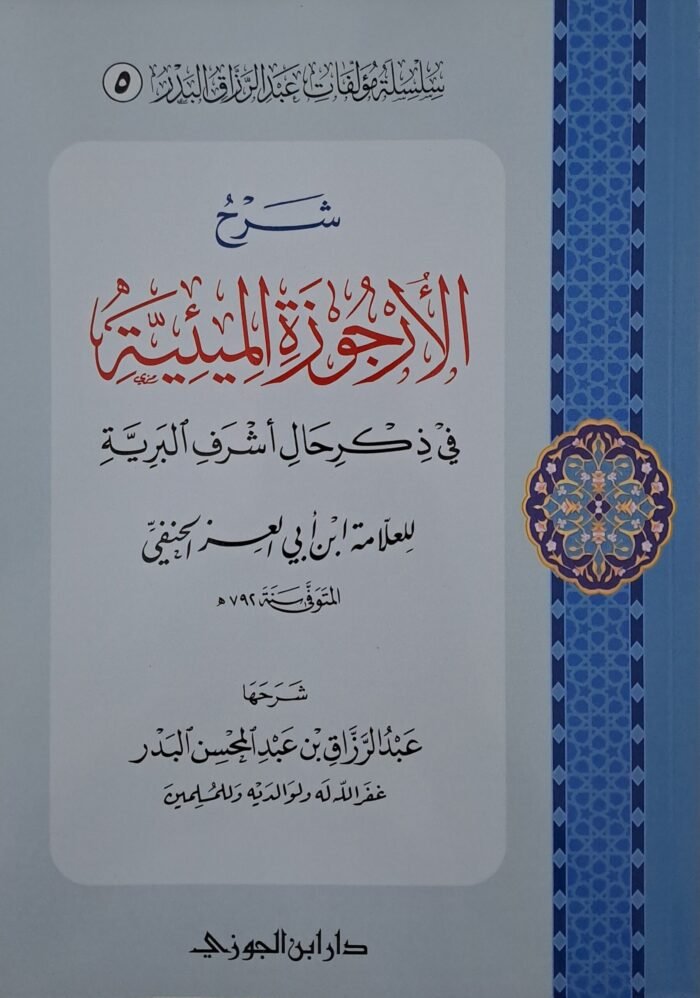 سِلْسِلَةُ مُؤَلَّفَاتِ عَبْدِ الرَّزَّاقِ البَدْرِ ٥
شَرْحُ
الأُرْجُوزَةِ المِيئِيَّةِ
فِي ذِكْرِ حَالِ أَشْرَفِ البَرِيَّةِ
لِلعلّامة ابْن أَبي العِز الحنَفيِّ
المتَوَفَّى سَنَة ٧٩٢ ه
شَرَحَهَا
عَبْدُ الرَّزَّاقِ بْن عَبْدِ المُحْسِن البَدْر
غفَرَ اللَّه لَه وَلوَالدَيْه وَللمُسْلِمينَ
دار ابن الجوزي